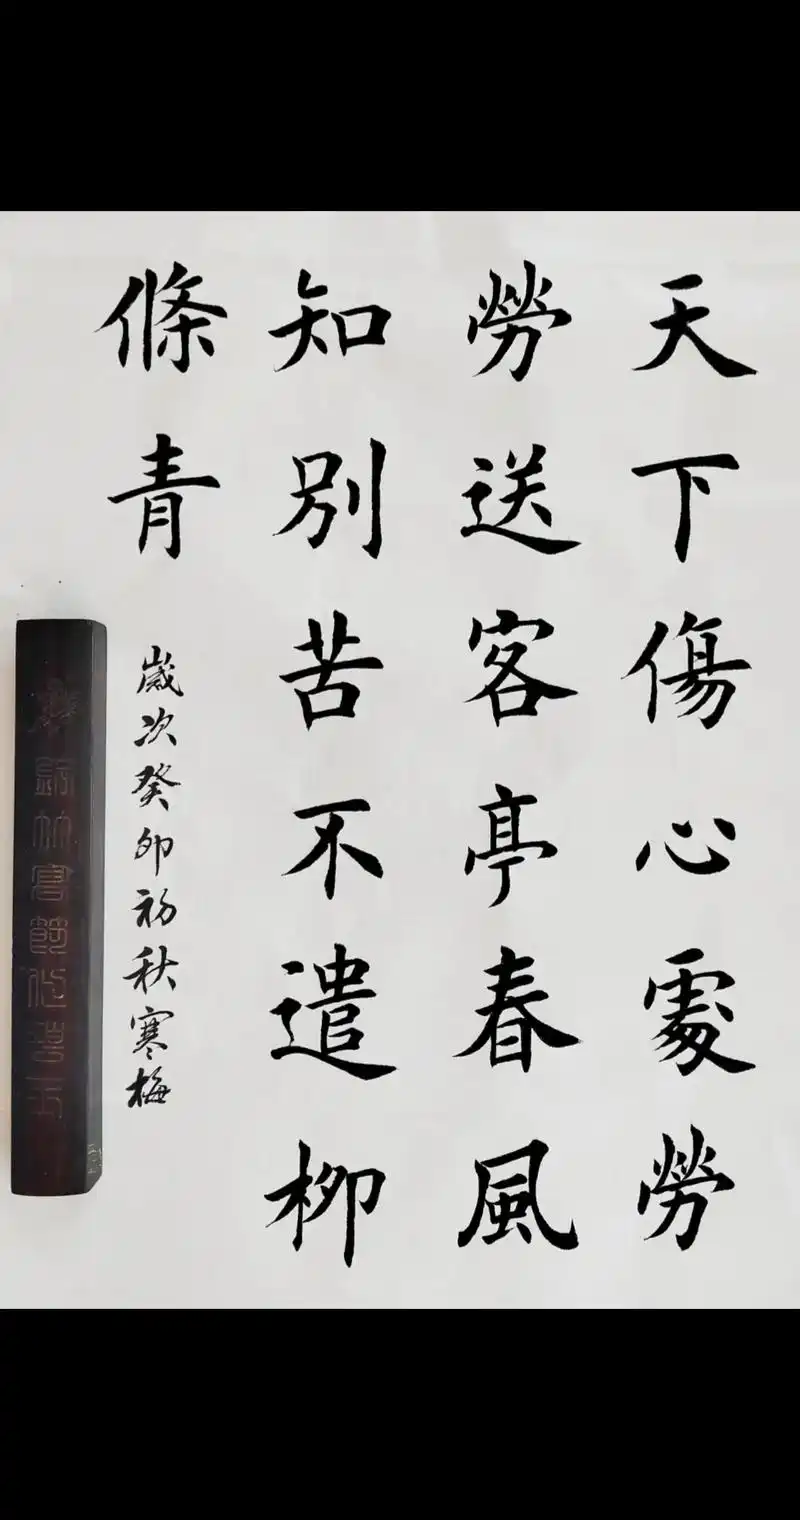 天下傷心處勞
勞送客亭春風
知別苦不遣柳
條青
歲次癸卯初秋寒梅